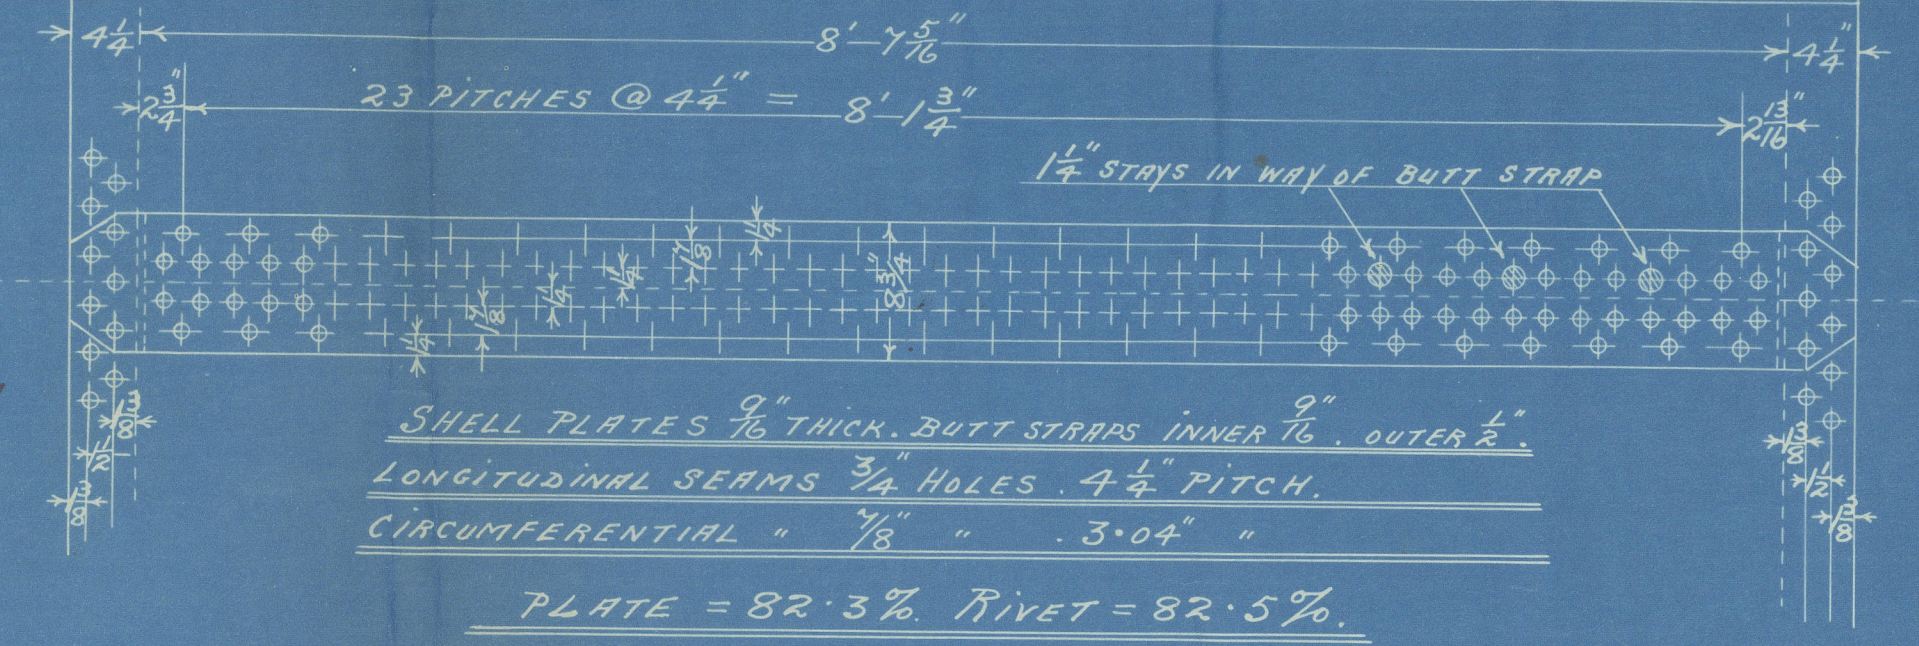 4 1/4 8'-7 5/16" 4 1/4"
2 3/4" 23 PITCHES @ 4 1/4" = 8'-1 3/4" 2 13/16"
1 1/4" STAYS IN WAY OF BUTT STRAP
1 1/4
1 7/8
1 1/4
8 3/4"
1 1/4
1 7/8
1 1/4
1 3/8
1 1/2
1 3/8
1 3/8
1 1/2
1 3/8
SHELL PLATES 9/16" THICK. BUTT STRAPS INNER 9/16". OUTER 1/2".
LONGITUDINAL SEAMS 3/4" HOLES. 4 1/4" PITCH.
CIRCUMFERENTIAL " 7/8" " . 3·04" "
PLATE = 82·3%. RIVET = 82·5%.